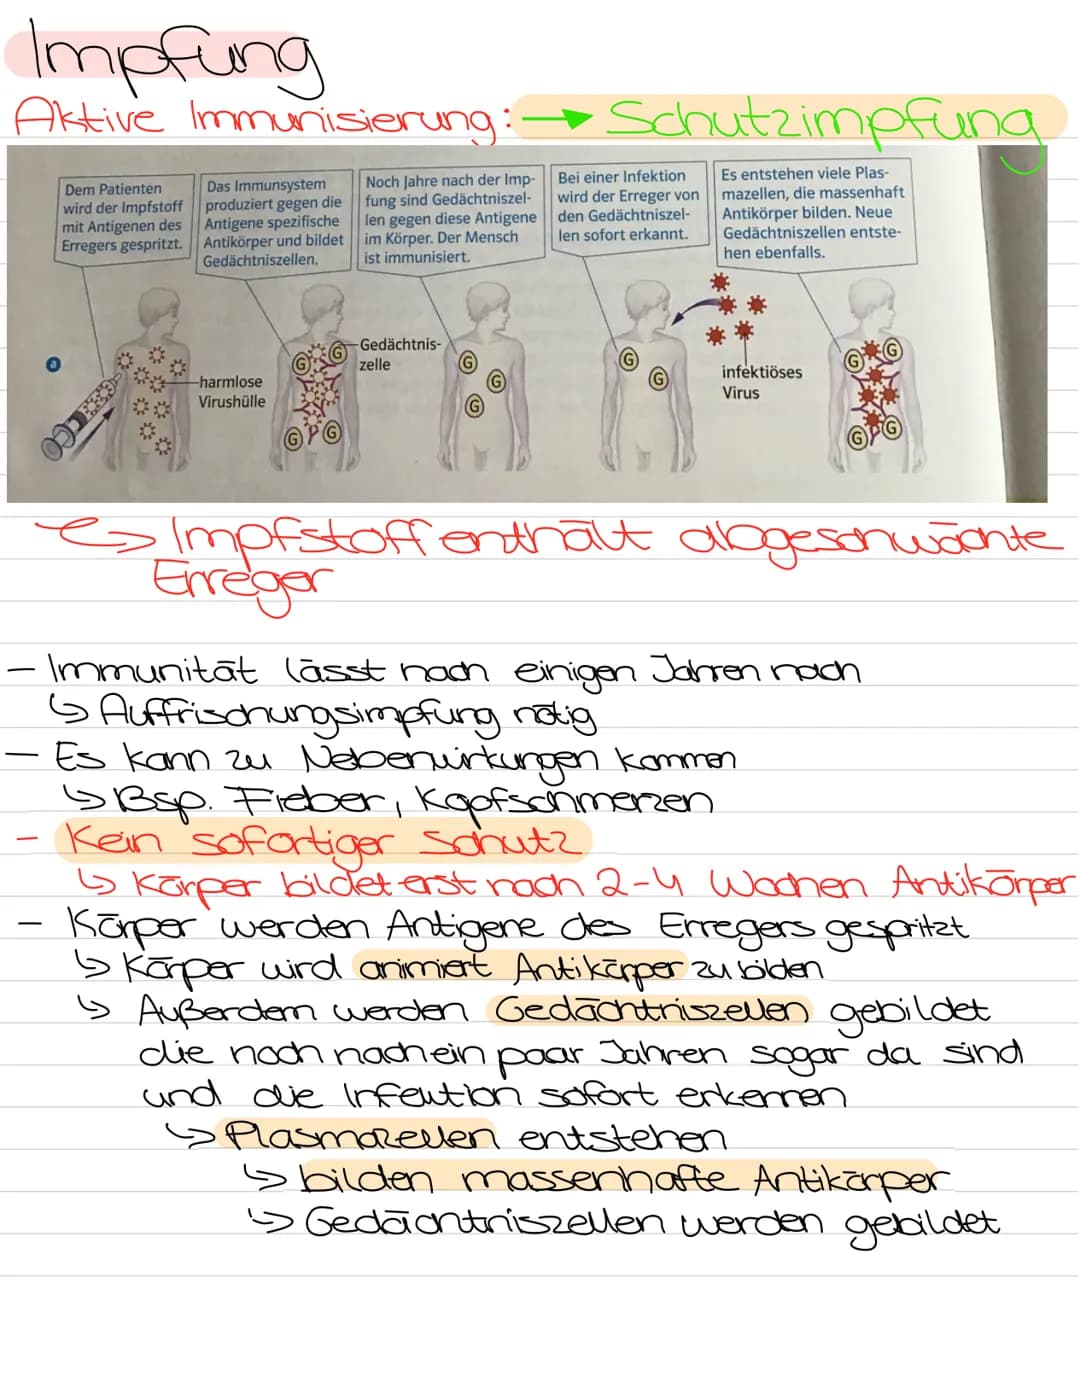 Impfung
Aktive Immunisierung: → Schutzimpfung
Dem Patienten
wird der Impfstoff
mit Antigenen des
Erregers gespritzt.
Das Immunsystem
produziert gegen die
Antigene spezifische
Antikörper und bildet
Gedächtniszellen.
Noch Jahre nach der Imp-
fung sind Gedächtniszel-
len gegen diese Antigene
im Körper. Der Mensch
ist immunisiert.
Bei einer Infektion
wird der Erreger von
den Gedächtniszel-
len sofort erkannt.
Es entstehen viele Plas-
mazellen, die massenhaft
Antikörper bilden. Neue
Gedächtniszellen entste-
hen ebenfalls.
a
harmlose
Virushülle
Gedächtnis-
zelle
G G G G
G G G
G G
infektiöses
Virus
G G G G
↳ Impfstoff enthält abgeschwächte
Erreger
- Immunität lässt nach einigen Jahren nach
↳ Auffrischungsimpfung nötig
- Es kann zu Nebenwirkungen kommen
↳ Bsp. Fieber, Kopfschmerzen
- Kein sofortiger Schutz
↳ Körper bildet erst nach 2-4 Wochen Antikörper
- Körper werden Antigene des Erregers gespritzt
↳ Körper wird animiert Antikörper zu bilden
↳ Außerdem werden Gedächtniszellen gebildet
die noch nach ein paar Jahren sogar da sind
und die Infektion sofort erkennen
↳ Plasmazellen entstehen
↳ bilden massenhafte Antikörper
↳ Gedächtniszellen werden gebildet